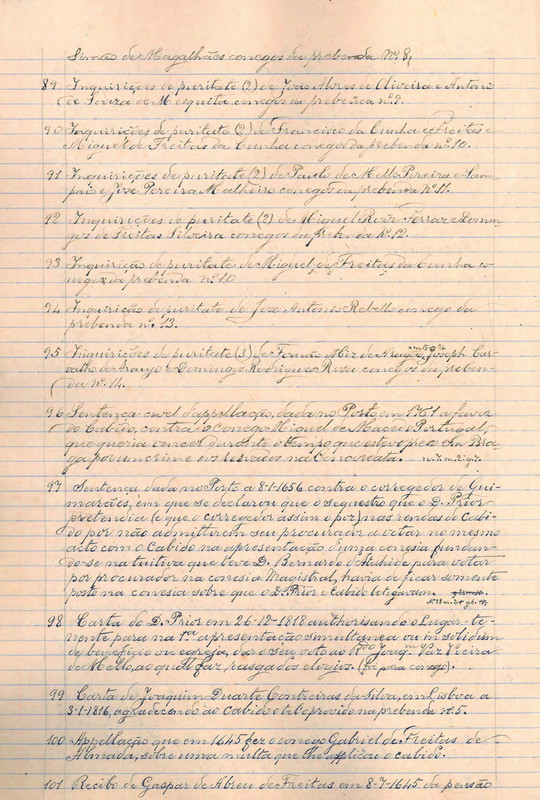 Simão de Magalhães conegos da prebenda nº 8,
89 Inquirições de puritate (2) de João Abres de Oliveira e Antoni
de Souza de Mesquita conegos da prebenda nº 9.
90 Inquirições de puritate (2) de Francisco da Cunha e Freitas e
Miguel de Freitas da Cunha conegos da prebenda nº 10.
91 Inquirições de puritate (2) de Paulo de Mello Pereira e Sam-
paio e José Pereira Malheiro conegos da prebenda nº 11.
92 Inquirições de puritate (2) de Miguel Ferraz e Domin-
gos de Freitas Silveira conegos da prebenda nº 12.
93 Inquirição de puritate de Miguel de Freitas da Cunha co
nego da prebenda nº 10
94 Inquirição de puritate de José Antonio Rebello conego da
prebenda nº 13.
95 Inquirições de puritate (3) de Fernão Miz de Joseph Car-
valho de Araujo e Domingos Rodrigues Rosa conegos da preben-
da nº 14.
96 Sentença civel d'appellação, dada no Porto em 1751 a favor
do Cabido, contra o Conego Miguel de Macedo Portugal,
que queria vencer durante o tempo que esteve preso em Bra-
ga por um crime na Concordata.
97 Sentença dada no Porto a 8-1-1656 contra o corregedor de Gui-
marães, em que se declarou que o sequestro que o D. Prior
pretendia (e que o corregedor assim o poz) nas rendas do Cabi-
do por não admittirem seu procurador a votar no mesmo
acto com o Cabido na apresentação d'uma conesia fundan-
do-se na tuitiva que teve D. Bernardo d'Athaide para votar
por procurador na conesia Magistral, havia de ficar somente
posto na conesia sobre que o D. Prior e Cabido letigavam.
98 Carta do D. Prior em 26-12-1818 authorisando o Lugar-te-
nente para na 1ª apresentação simultanea ou in solidum
de beneficio ou egreja, dar o seu voto ao Pdo Joaqm Vaz Vieira
de Mello, ao qual faz rasgados elogios. (foi para conego).
99 Carta de Joaquim Duarte Contreiras da Silva, em Lisboa a
3-1-1816, agradecendo ao Cabido o tel-o provido na prebenda nº 5.
100 Appellação que em 1645 fez o conego Gabriel de Freitas de
Almada, sobre uma multa que lhe applicou o cabido.
101 Recibo de Gaspar de Abreu de Freitas em 8-7-1645 da pensão